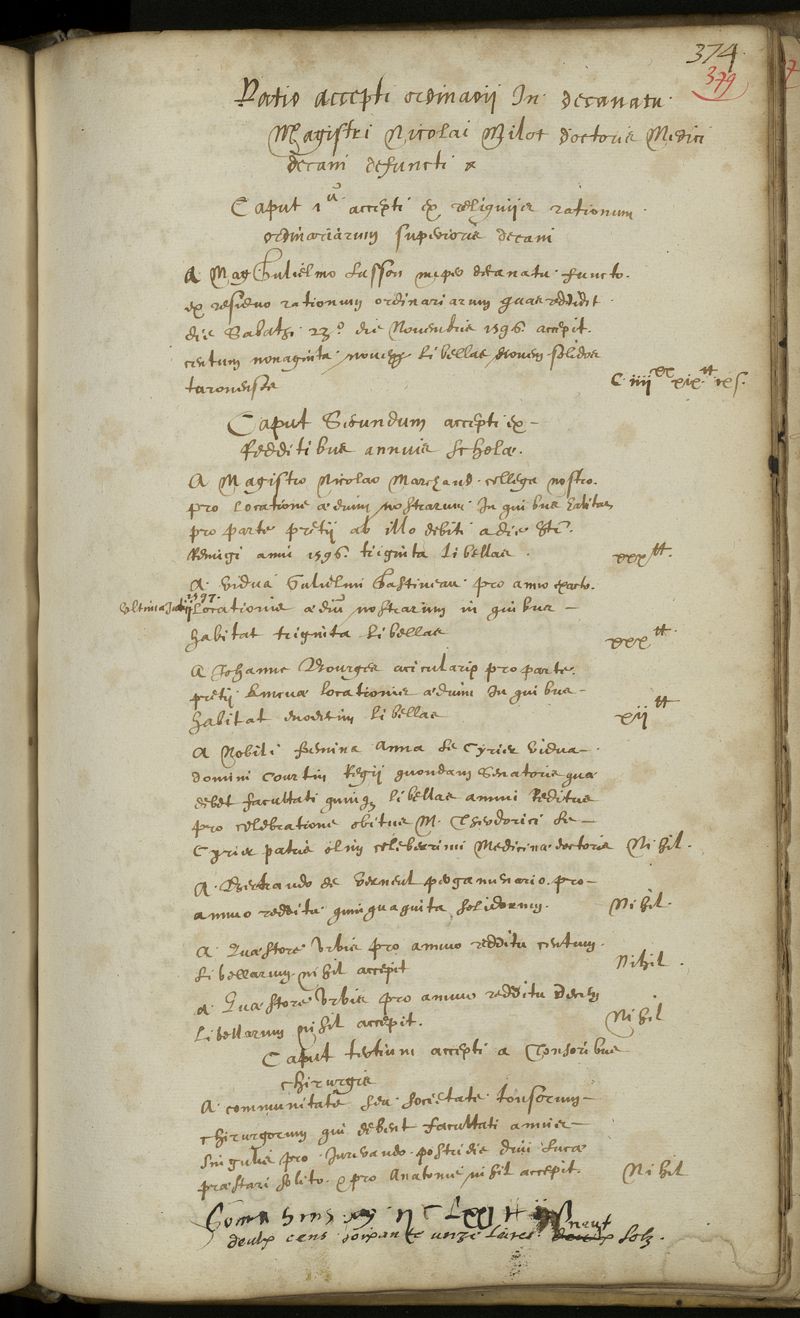 374
379
Ratio accepti ordinarij In decanatu
Magistri Nicolai Milot doctoris Medici
decani defuncti
Caput 1ũ accepti ex reliquijs rationum
ordinariarum superioris decani
A Mag Gulielmo Lusson nuper decanatu functo.
ex residuo rationum ordinariarum quas reddidit
die Sabathi 23º. die Novembris 1596 accepit.
centum nonaginta novem libellas novem solidos
turonenses
C iiijxx xix tt ix s.
Caput Secundum accepti ex
Redditibus annuis scholæ.
A Magistro Nicolao Marchand collega nostro.
pro locatione ædium nostrarum In quibus habitat
pro parte pretij ab illo debiti a die Sti.
Remigi anni 1596. triginta libellas.
xxx tt.
A vidua Gulielmi Gastineau pro anno exacto.
ultima Julij 1597.
locationis ædiũ nostrarum in quibus
habitat triginta libellas
xxx tt.
A Johanne Bourges acicularis pro parte.
pretij annuæ locationis ædium In quibus
habitat duodecim libellas
xij tt
A Nobili fœmina Anna Le Cyrier vidua
domini Courtin Regij quondam Senatoris quæ
debet facultati quinq; libellas annui Reditus
pro celebratione obitus M. Theodorici Le
Cyrier patris olim celeberrimi Medicinæ doctoris Nihil.
A Bertrando de Verneul pergamenario. pro
annuo redditu quinquaginta solidorum. Nihil.
A Quæstore Urbis pro annuo redditu centum.
Libellarum nihil accepit Nihil.
A Quæstore Urbis pro annuo redditu Decem
Libellarum nihil accepit. Nihil
Caput tertium accepti a Tonsoribus
chirurgis
A communitate seu societate tonsorum
chirurgorum qui debent facultati annis
singulis pro Jurevando postridie divi Lucæ
præstari solito & pro Anatome nihil accepit. Nihil
Somã ijc Lxxj tt
deulx cens soixante unze livres neuf solz.